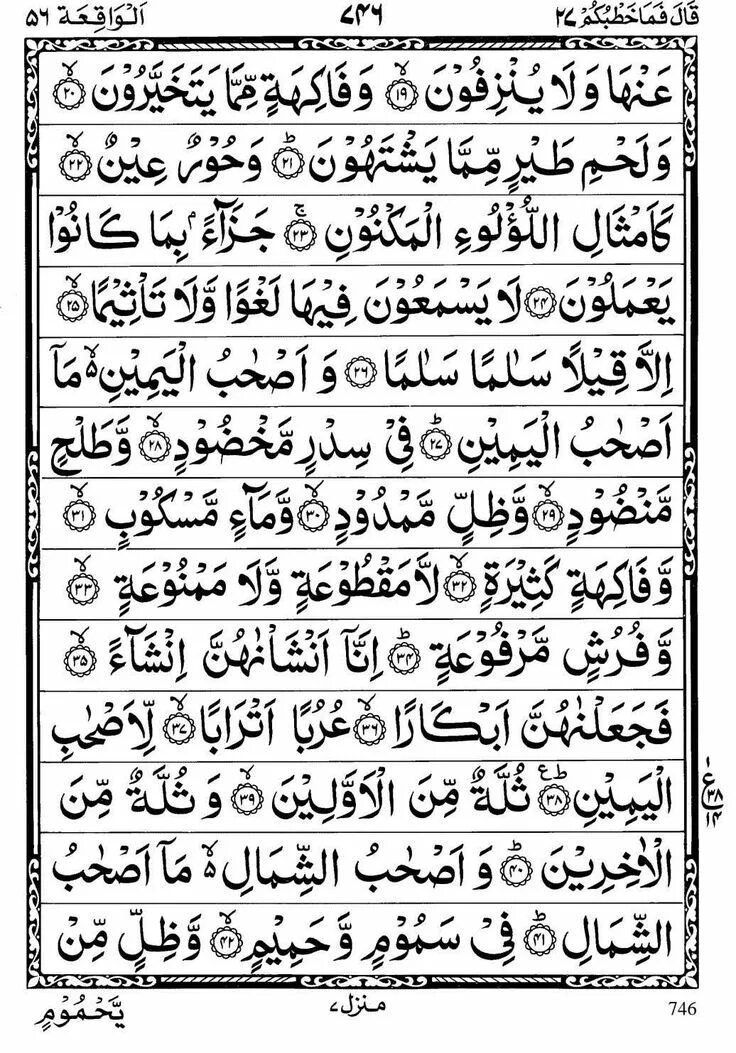 قَالَ فَمَا خَطْبُكُمْ ۲۷ ۷۴۶ اَلْوَاقِعَة ۵۶
عَنْهَا وَلَا يُنْزِفُوْنَ ۙ‏﴿۱۹﴾ وَفَاكِهَةٍ مِّمَّا يَتَخَيَّرُوْنَ ۙ‏﴿۲۰﴾
وَلَحْمِ طَيْرٍ مِّمَّا يَشْتَهُوْنَ ؕ‏﴿۲۱﴾ وَحُوْرٌ عِيْنٌ ۙ‏﴿۲۲﴾
كَاَمْثَالِ اللُّؤْلُوءِ الْمَكْنُوْنِ ۚ‏﴿۲۳﴾ جَزَآءًۢ بِمَا كَانُوْا
يَعْمَلُوْنَ ﴿۲۴﴾ لَا يَسْمَعُوْنَ فِيْهَا لَغْوًا وَّلَا تَاْثِيْمًا ۙ‏﴿۲۵﴾
اِلَّا قِيْلًا سَلٰمًا سَلٰمًا ﴿۲۶﴾ وَ اَصْحٰبُ الْيَمِيْنِ ۙ۬ مَاۤ
اَصْحٰبُ الْيَمِيْنِ ؕ‏﴿۲۷﴾ فِىْ سِدْرٍ مَّخْضُوْدٍ ۙ‏﴿۲۸﴾ وَّطَلْحٍ
مَّنْضُوْدٍ ۙ‏﴿۲۹﴾ وَّظِلٍّ مَّمْدُوْدٍ ۙ‏﴿۳۰﴾ وَّمَآءٍ مَّسْكُوْبٍ ۙ‏﴿۳۱﴾
وَّفَاكِهَةٍ كَثِيْرَةٍ ۙ‏﴿۳۲﴾ لَّا مَقْطُوْعَةٍ وَّلَا مَمْنُوْعَةٍ ۙ‏﴿۳۳﴾
وَّفُرُشٍ مَّرْفُوْعَةٍ ؕ‏﴿۳۴﴾ اِنَّاۤ اَنْشَاْنٰهُنَّ اِنْشَآءً ۙ‏﴿۳۵﴾
فَجَعَلْنٰهُنَّ اَبْكَارًا ۙ‏﴿۳۶﴾ عُرُبًا اَتْرَابًا ۙ‏﴿۳۷﴾ لِّاَصْحٰبِ
الْيَمِيْنِ ؕ‏﴿۳۸﴾ ع ثُلَّةٌ مِّنَ الْاَوَّلِيْنَ ۙ‏﴿۳۹﴾ وَ ثُلَّةٌ مِّنَ
۱ ع ۳۸ ۱۴
الْاٰخِرِيْنَ ؕ‏﴿۴۰﴾ وَ اَصْحٰبُ الشِّمَالِ ۙ۬ مَاۤ اَصْحٰبُ
الشِّمَالِ ؕ‏﴿۴۱﴾ فِىْ سَمُوْمٍ وَّ حَمِيْمٍ ۙ‏﴿۴۲﴾ وَّظِلٍّ مِّنْ
746 منزل ۷ يَّحْمُوْمٍ